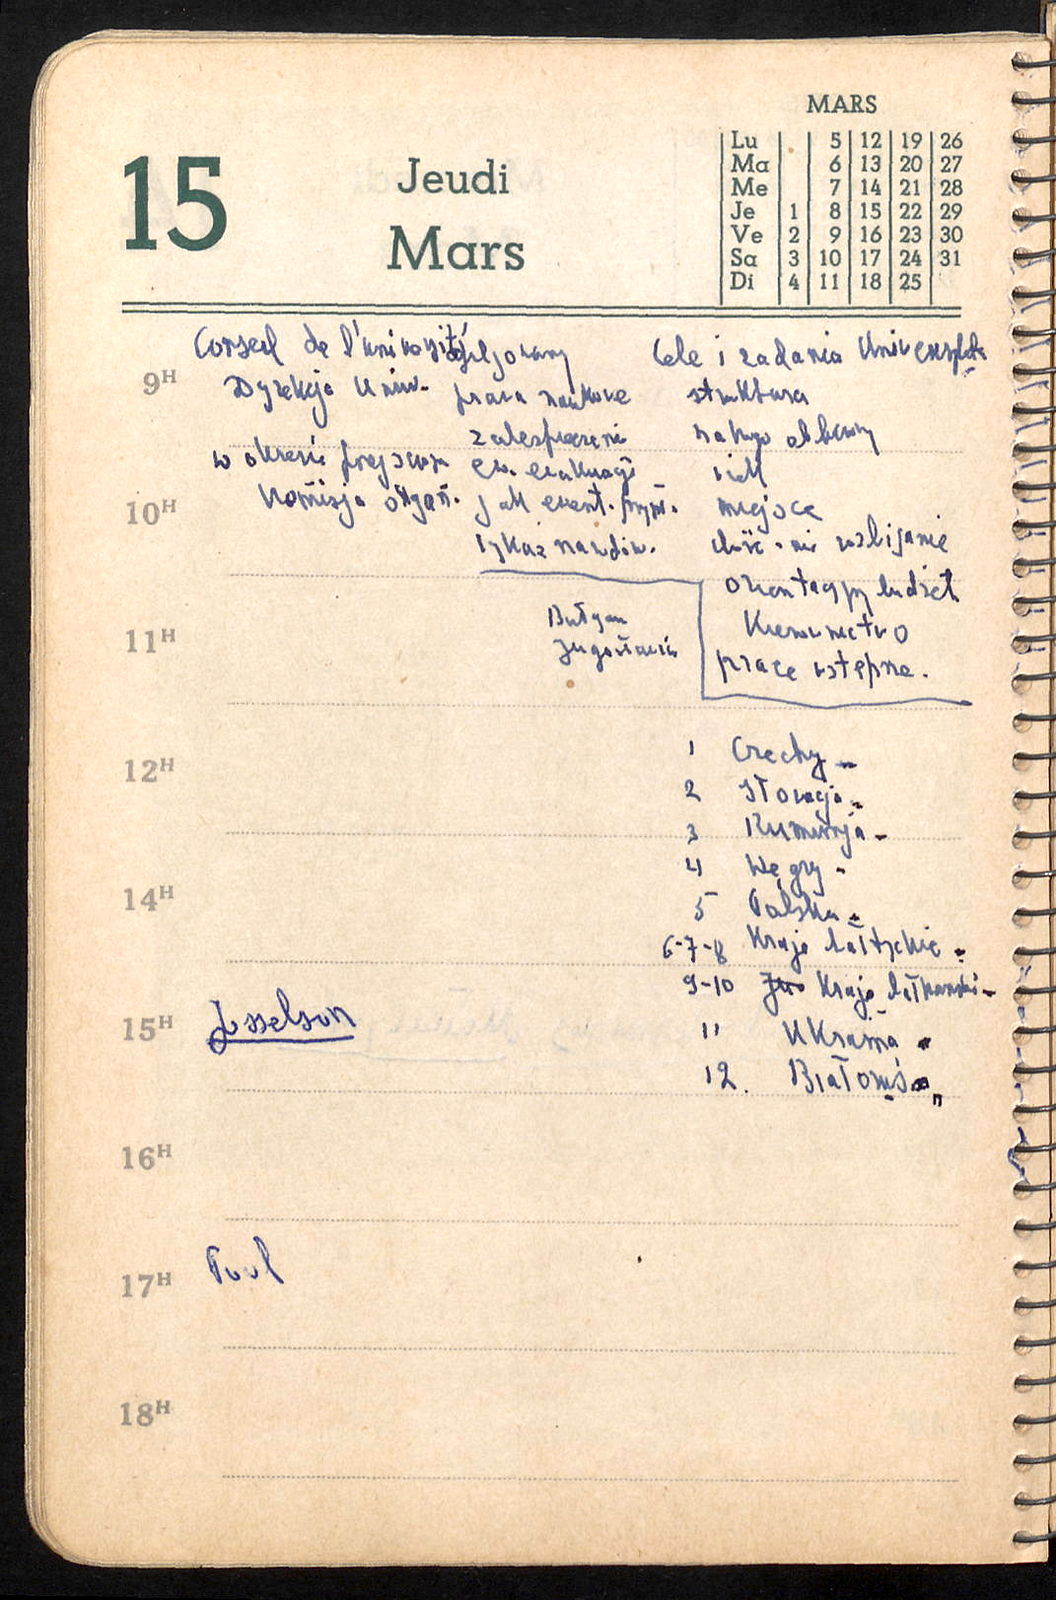 MARS
Lu 5 12 19 26
Ma 6 13 20 27
Me 7 14 21 28
Je 1 8 15 22 29
Ve 2 9 16 23 30
Sa 3 10 17 24 31
Di 4 11 18 25
15
Jeudi
Mars
9H
10H
11H
12H
14H
15H
16H
17H
18H
Conseil de l'université
Dyrekcja Uniw.
w okresie przejściow
Komisja organ.
prawa naukowe
ew. ewakuacji
jak ewent. przyn.
Bułgar
Jugosławia
Cele i zadania Uniwersytetu
struktura
miejsce
budżet
Kierownictwo
prace wstępne.
1 Czechy
2 Słowacja
3 Rumunja
4 Węgry
5 Polska
6-7-8 Kraje bałtyckie
9-10 Kraje bałkanski
11 Ukraina
12. Białoruś
Josselson